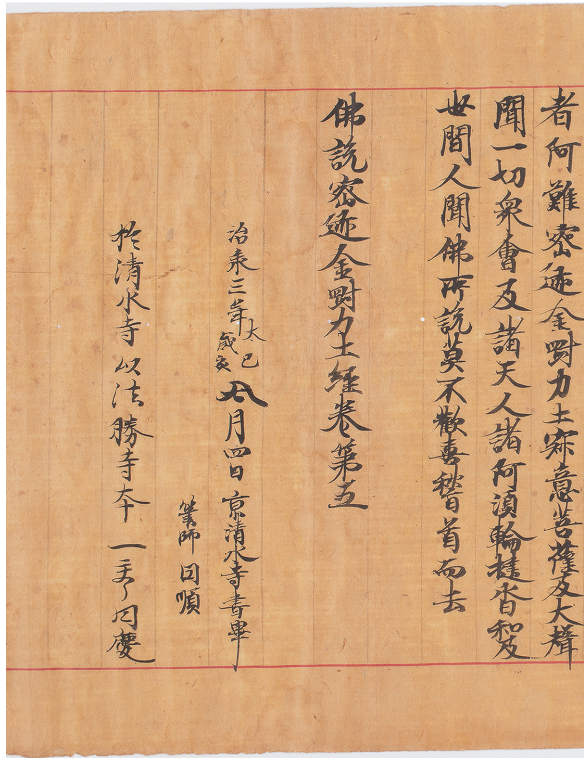 者阿難密迹金剛力士寂意菩薩及大聲
聞一切衆會及諸天人諸阿須輪揵沓和及
世間人聞佛所說莫不歡喜稽首而去
佛說密迹金剛力士經卷第五
治承三年大歲己亥八月四日京清水寺書畢
筆師 因順
於清水寺以法勝寺本一交了 因慶